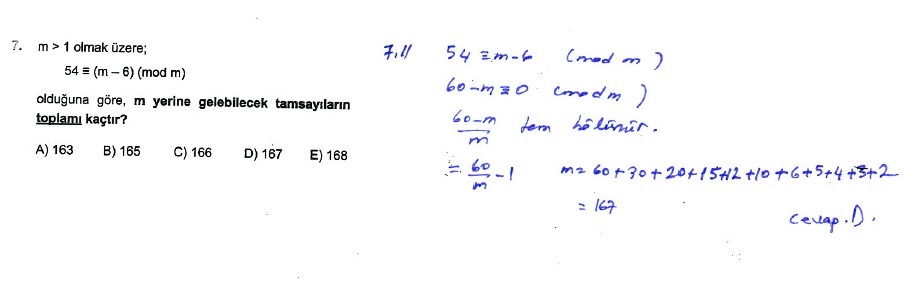 7. m > 1 olmak üzere;
54 ≡ (m – 6) (mod m)
olduğuna göre, m yerine gelebilecek tamsayıların
toplamı kaçtır?
A) 163 B) 165 C) 166 D) 167 E) 168
7,//
54 ≡ m-6 (mod m)
60-m ≡ 0 (mod m)
60-m / m tam bölünür.
= 60/m - 1
m = 60+30+20+15+12+10+6+5+4+3+2
= 167
Cevap. D.